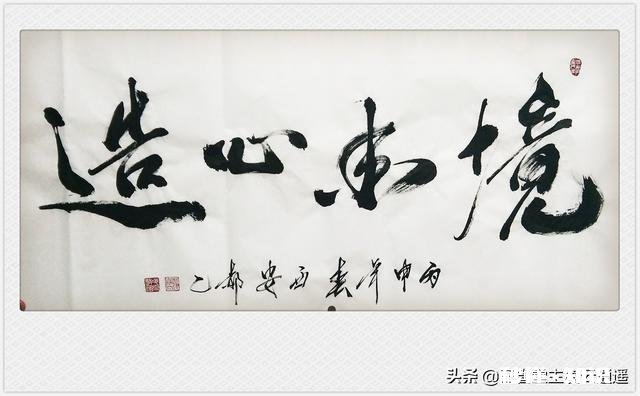 境由心造
丙申年春西安
头条 @